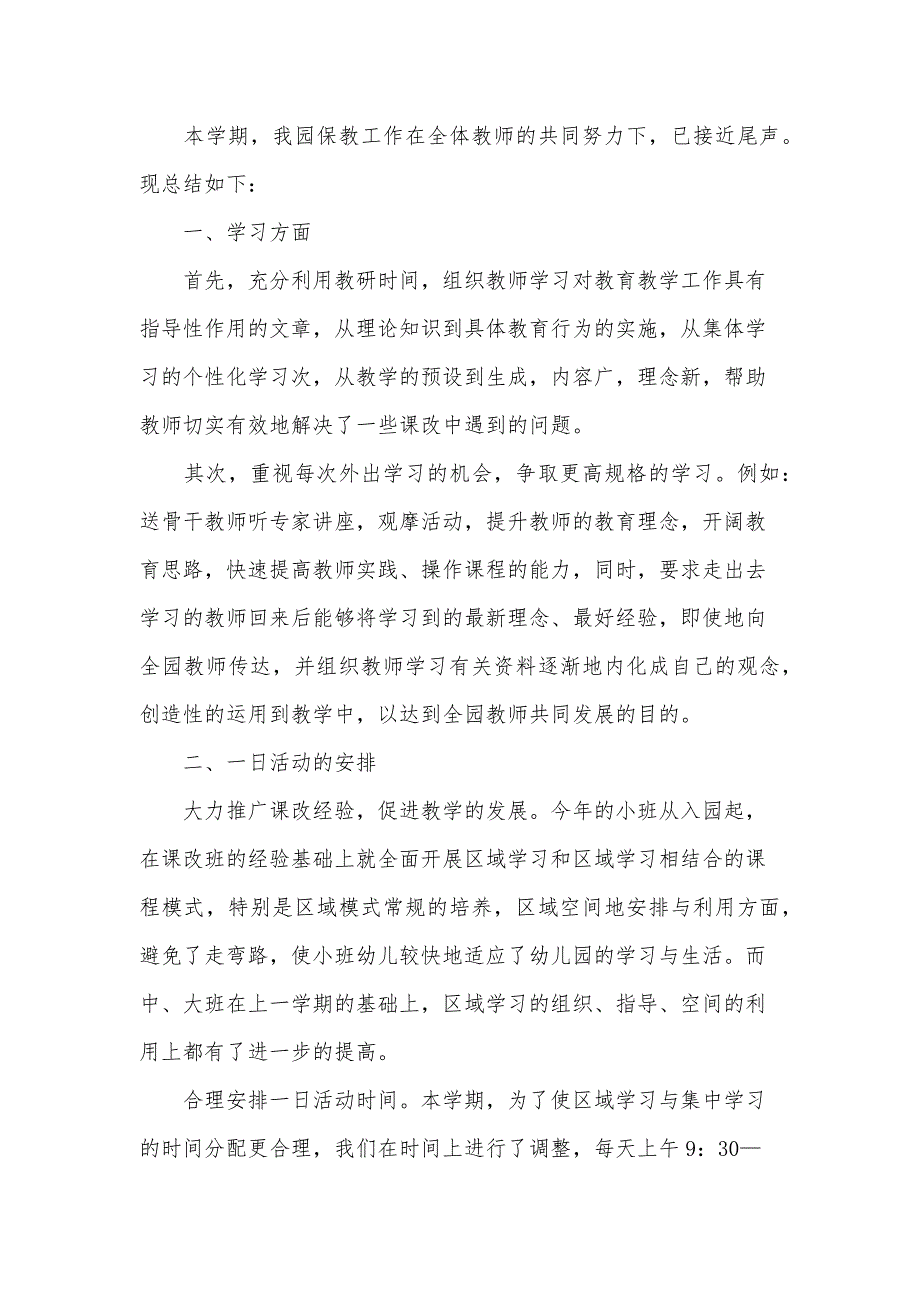 本学期，我园保教工作在全体教师的共同努力下，已接近尾声。
现总结如下：
一、学习方面
首先，充分利用教研时间，组织教师学习对教育教学工作具有
指导性作用的文章，从理论知识到具体教育行为的实施，从集体学
习的个性化学习次，从教学的预设到生成，内容广，理念新，帮助
教师切实有效地解决了一些课改中遇到的问题。
其次，重视每次外出学习的机会，争取更高规格的学习。例如：
送骨干教师听专家讲座，观摩活动，提升教师的教育理念，开阔教
育思路，快速提高教师实践、操作课程的能力，同时，要求走出去
学习的教师回来后能够将学习到的最新理念、最好经验，即使地向
全园教师传达，并组织教师学习有关资料逐渐地内化成自己的观念，
创造性的运用到教学中，以达到全园教师共同发展的目的。
二、一日活动的安排
大力推广课改经验，促进教学的发展。今年的小班从入园起，
在课改班的经验基础上就全面开展区域学习和区域学习相结合的课
程模式，特别是区域模式常规的培养，区域空间地安排与利用方面，
避免了走弯路，使小班幼儿较快地适应了幼儿园的学习与生活。而
中、大班在上一学期的基础上，区域学习的组织、指导、空间的利
用上都有了进一步的提高。
合理安排一日活动时间。本学期，为了使区域学习与集中学习
的时间分配更合理，我们在时间上进行了调整，每天上午 9：30—